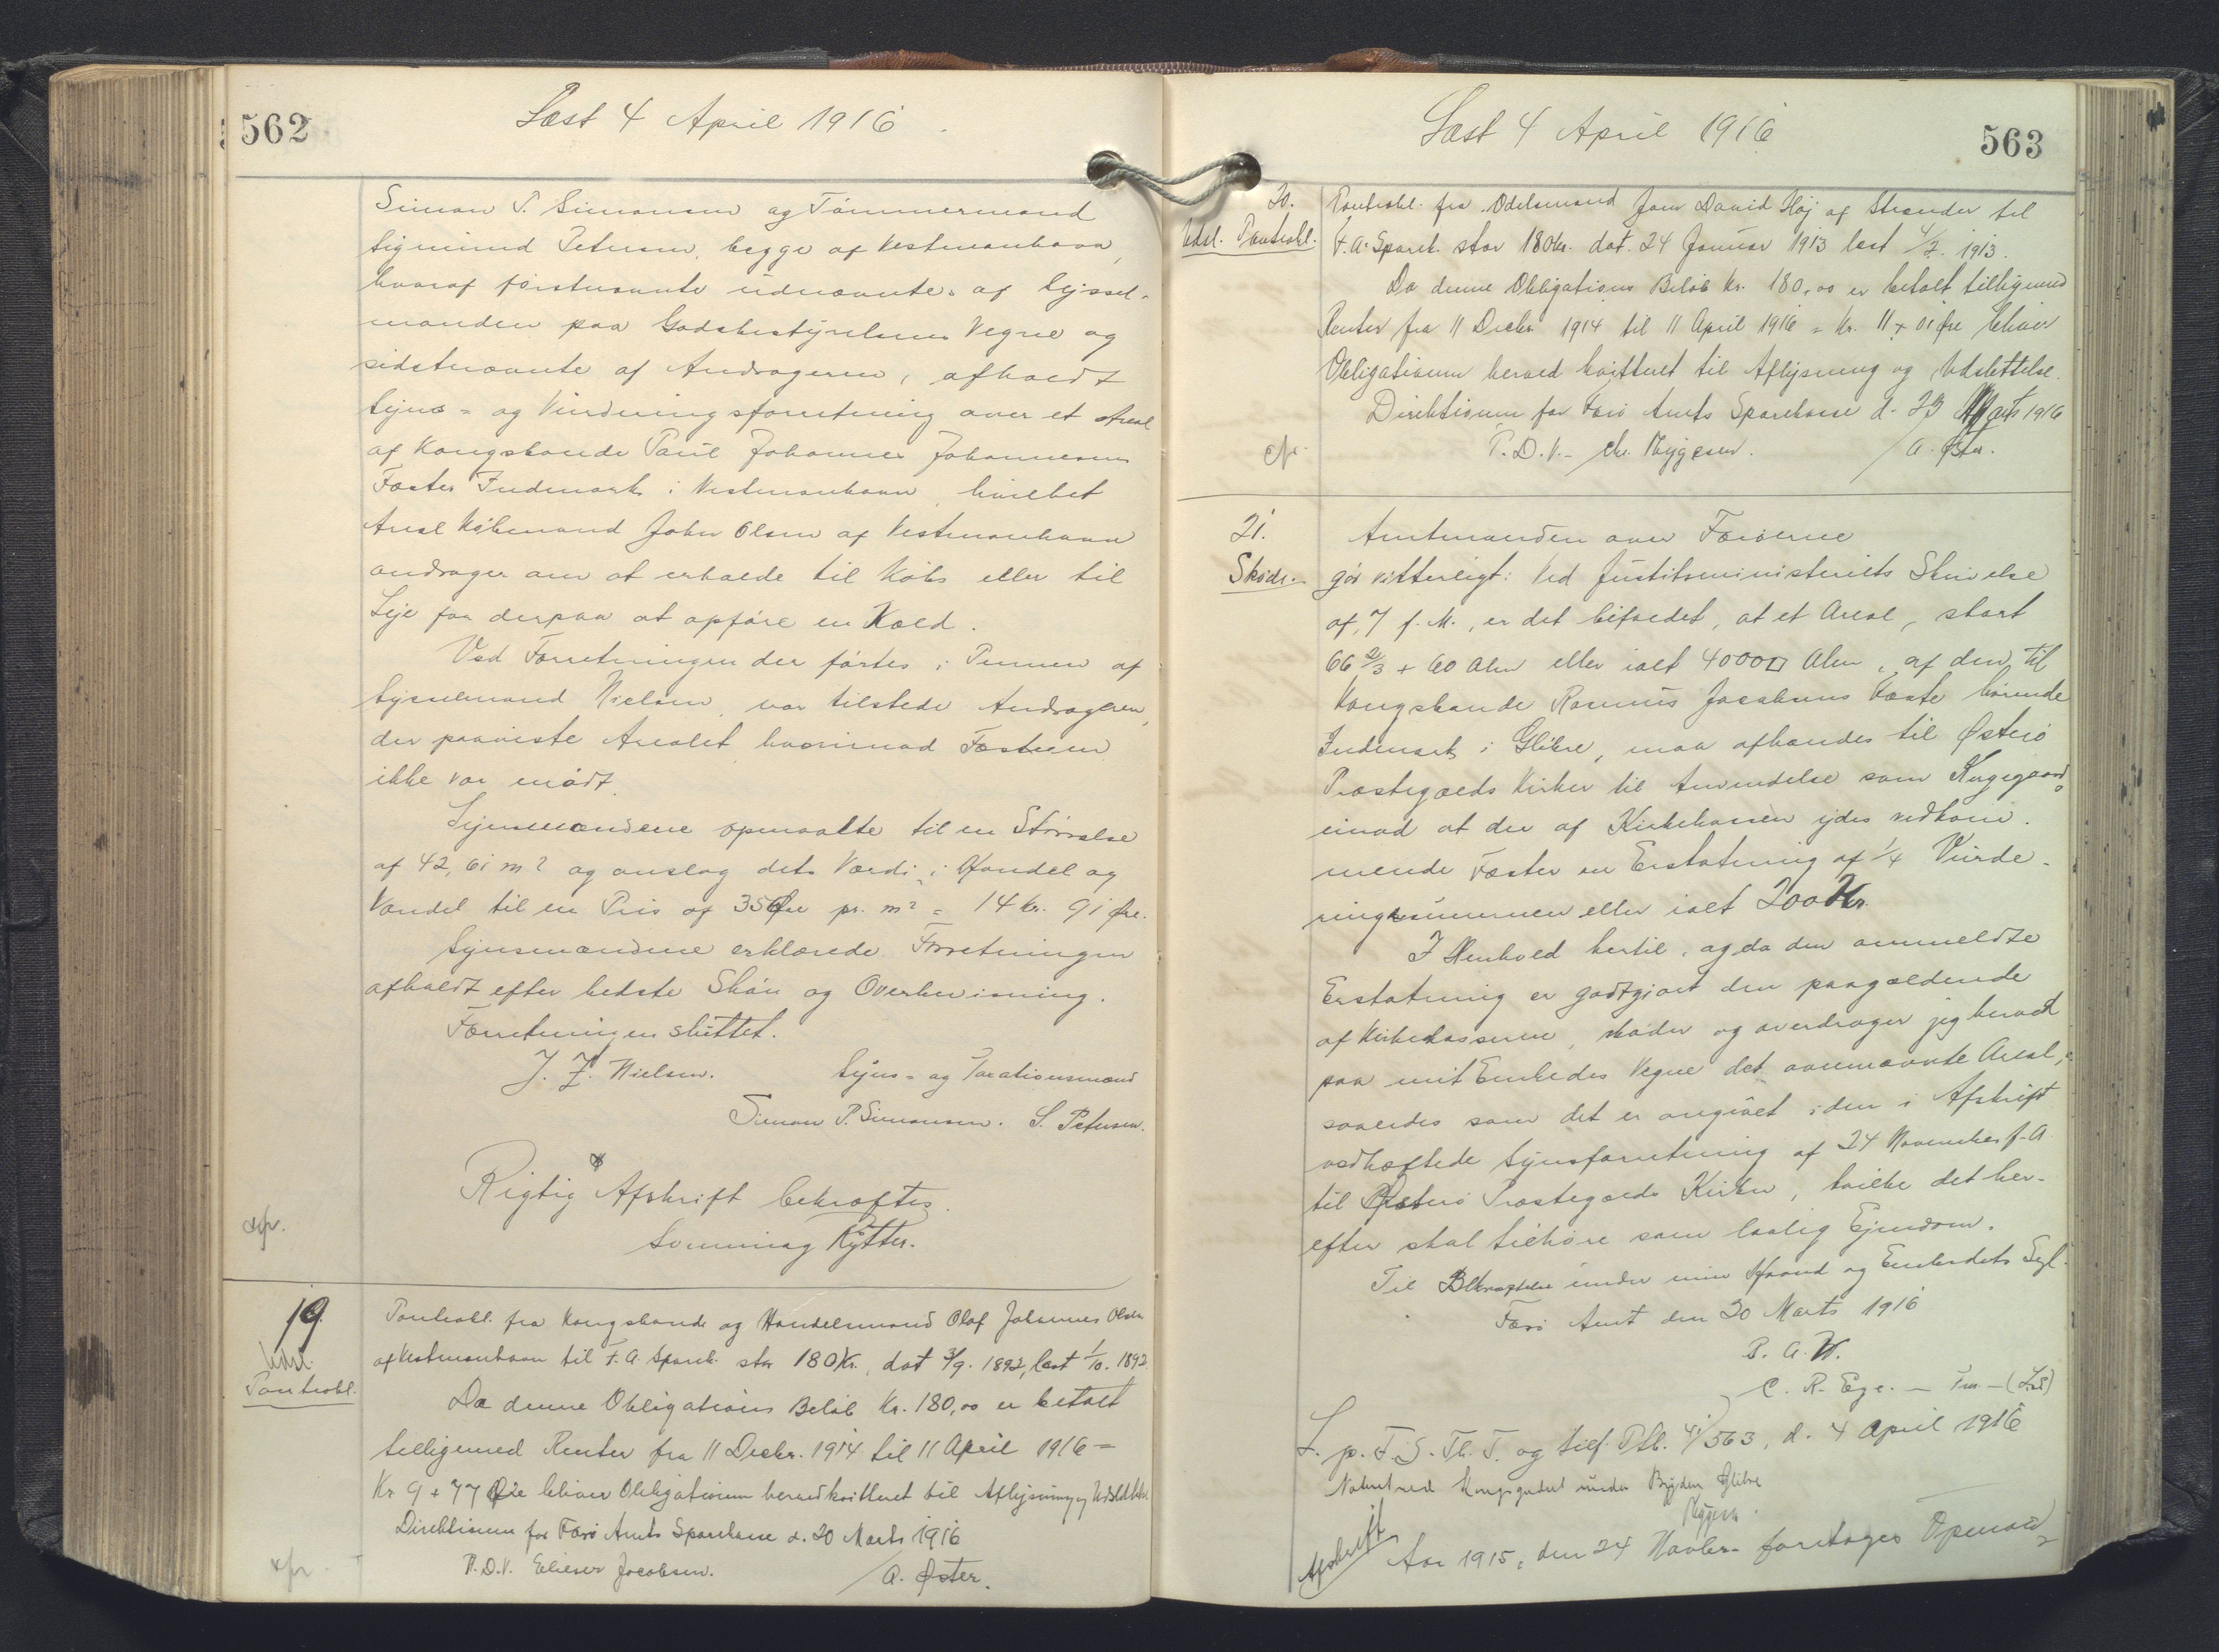 562
Læst 4 April 1916.
Simon P. Simonsen og Tømmermand
Sigmund Petersen, begge af Vestmanhavn,
hvoraf førstnævnte udnævntes af Syssel-
manden paa Godsbestyrelsens Vegne og
sidstnævnte af Andrageren, afholdt
Syns- og Vurderingsforretning over et Areal
af Kongsbonde Paul Johannes Johannesens
Fæstes Indmark i Vestmanhavn, hvilket
Areal Købmand John Olsen af Vestmanhavn
andrager om at erholde til Købs eller til
Leje for derpaa at opføre en Kold.
Ved Forretningen der førtes i Pennen af
Sysselmand Nielsen, var tilstede Andrageren,
der paaviste Arealet hvorimod Fæsteren
ikke var mødt.
Synsmændene opmaalte til en Størrelse
af 42,61 m2 og anslog dets Værdi i Handel og
Vandel til en Pris af 35 Øre pr. m2 = 14 Kr. 91 Øre.
Synsmændene erklærede Forretningen
afholdt efter bedste Skøn og Overbevisning.
Forretningen sluttet.
J. F. Nielsen. Syns- og Taxationsmænd
Simon P. Simonsen. S. Petersen.
Rigtig Afskrift bekræftes.
Rytter.
cfr.
19.
Udsl.
Pantobl.
Pantobl. fra Kongsbonde og Handelsmand Olaf Johannes Olsen
af Vestmanhavn til F. A. Spark. stor 180 Kr., dat 3/9. 1892, læst 1/10. 1892
Da denne Obligations Beløb Kr. 180,00 er betalt
tilligemed Renter fra 11 Decbr. 1914 til 11 April 1916 =
Kr 9 + 77 Øre bliver Obligationen herved kvitteret til Aflysning og Udslettelse
Direktionen for Færø Amts Sparekasse d. 20 Marts 1916
P.D.V. Elieser Jacobsen. / A. Øster.
cfr.
Læst 4 April 1916
563
20.
Udsl. Pantobl.
Pantobl. fra Odelsmand Joen David Høj af Strender til
F. A. Spark. stor 180 Kr. dat. 24 Januar 1913 læst 4/7. 1913.
Da denne Obligations Beløb Kr. 180,00 er betalt tilligemed
Renter fra 11 Decbr 1914 til 11 April 1916 = Kr. 11 + 01 Øre bliver
Obligationen herved kvitteret til Aflysning og Udslettelse.
Direktionen for Færø Amts Sparekasse d. 23 Marts 1916
P.D.V. - Chr. Thygesen. / A. Øster.
cfr.
21.
Skøde.
Amtmanden over Færøerne
gør vitterligt: Ved Justitsministeriets Skrivelse
af 7 f. M., er det bifaldet, at et Areal, stort
66 2/3 + 60 Alen eller ialt 4000 □ Alen, af den til
Kongsbonde Rasmus Jacobsens Fæste hørende
Indmark i Glibre, maa afhændes til Østerø
Præstegælds Kirker til Anvendelse som Kirkegaard,
imod at der af Kirkekassen ydes vedkom-
mende Fæster en Erstatning af 1/4 Vurde-
ringssummen eller ialt 200 Kr.
I Henhold hertil, og da den ommeldte
Erstatning er godtgjort den paagældende
af Kirkekasserne, skøder og overdrager jeg herved
paa mit Embedes Vegne det ovennævnte Areal,
saaledes som det er angivet i den i Afskrift
vedhæftede Synsforretning af 24 November f. A.
til Østerø Præstegælds Kirker, hvilke det her-
efter skal tilhøre som lovlig Ejendom.
Til Bekræftelse under min Haand og Embedets Segl.
Færø Amt den 30 Marts 1916
P. A. V.
C. R. Ege. - Fm - (L.S.)
L. p. F. S. Th. T. og tilf. Ptb. 4/563, d. 4 April 1916
Noteret ved Kongsgodset under Bygden Glibre
Afskrift
Aar 1915, den 24 Novbr. foretages Opmaa-